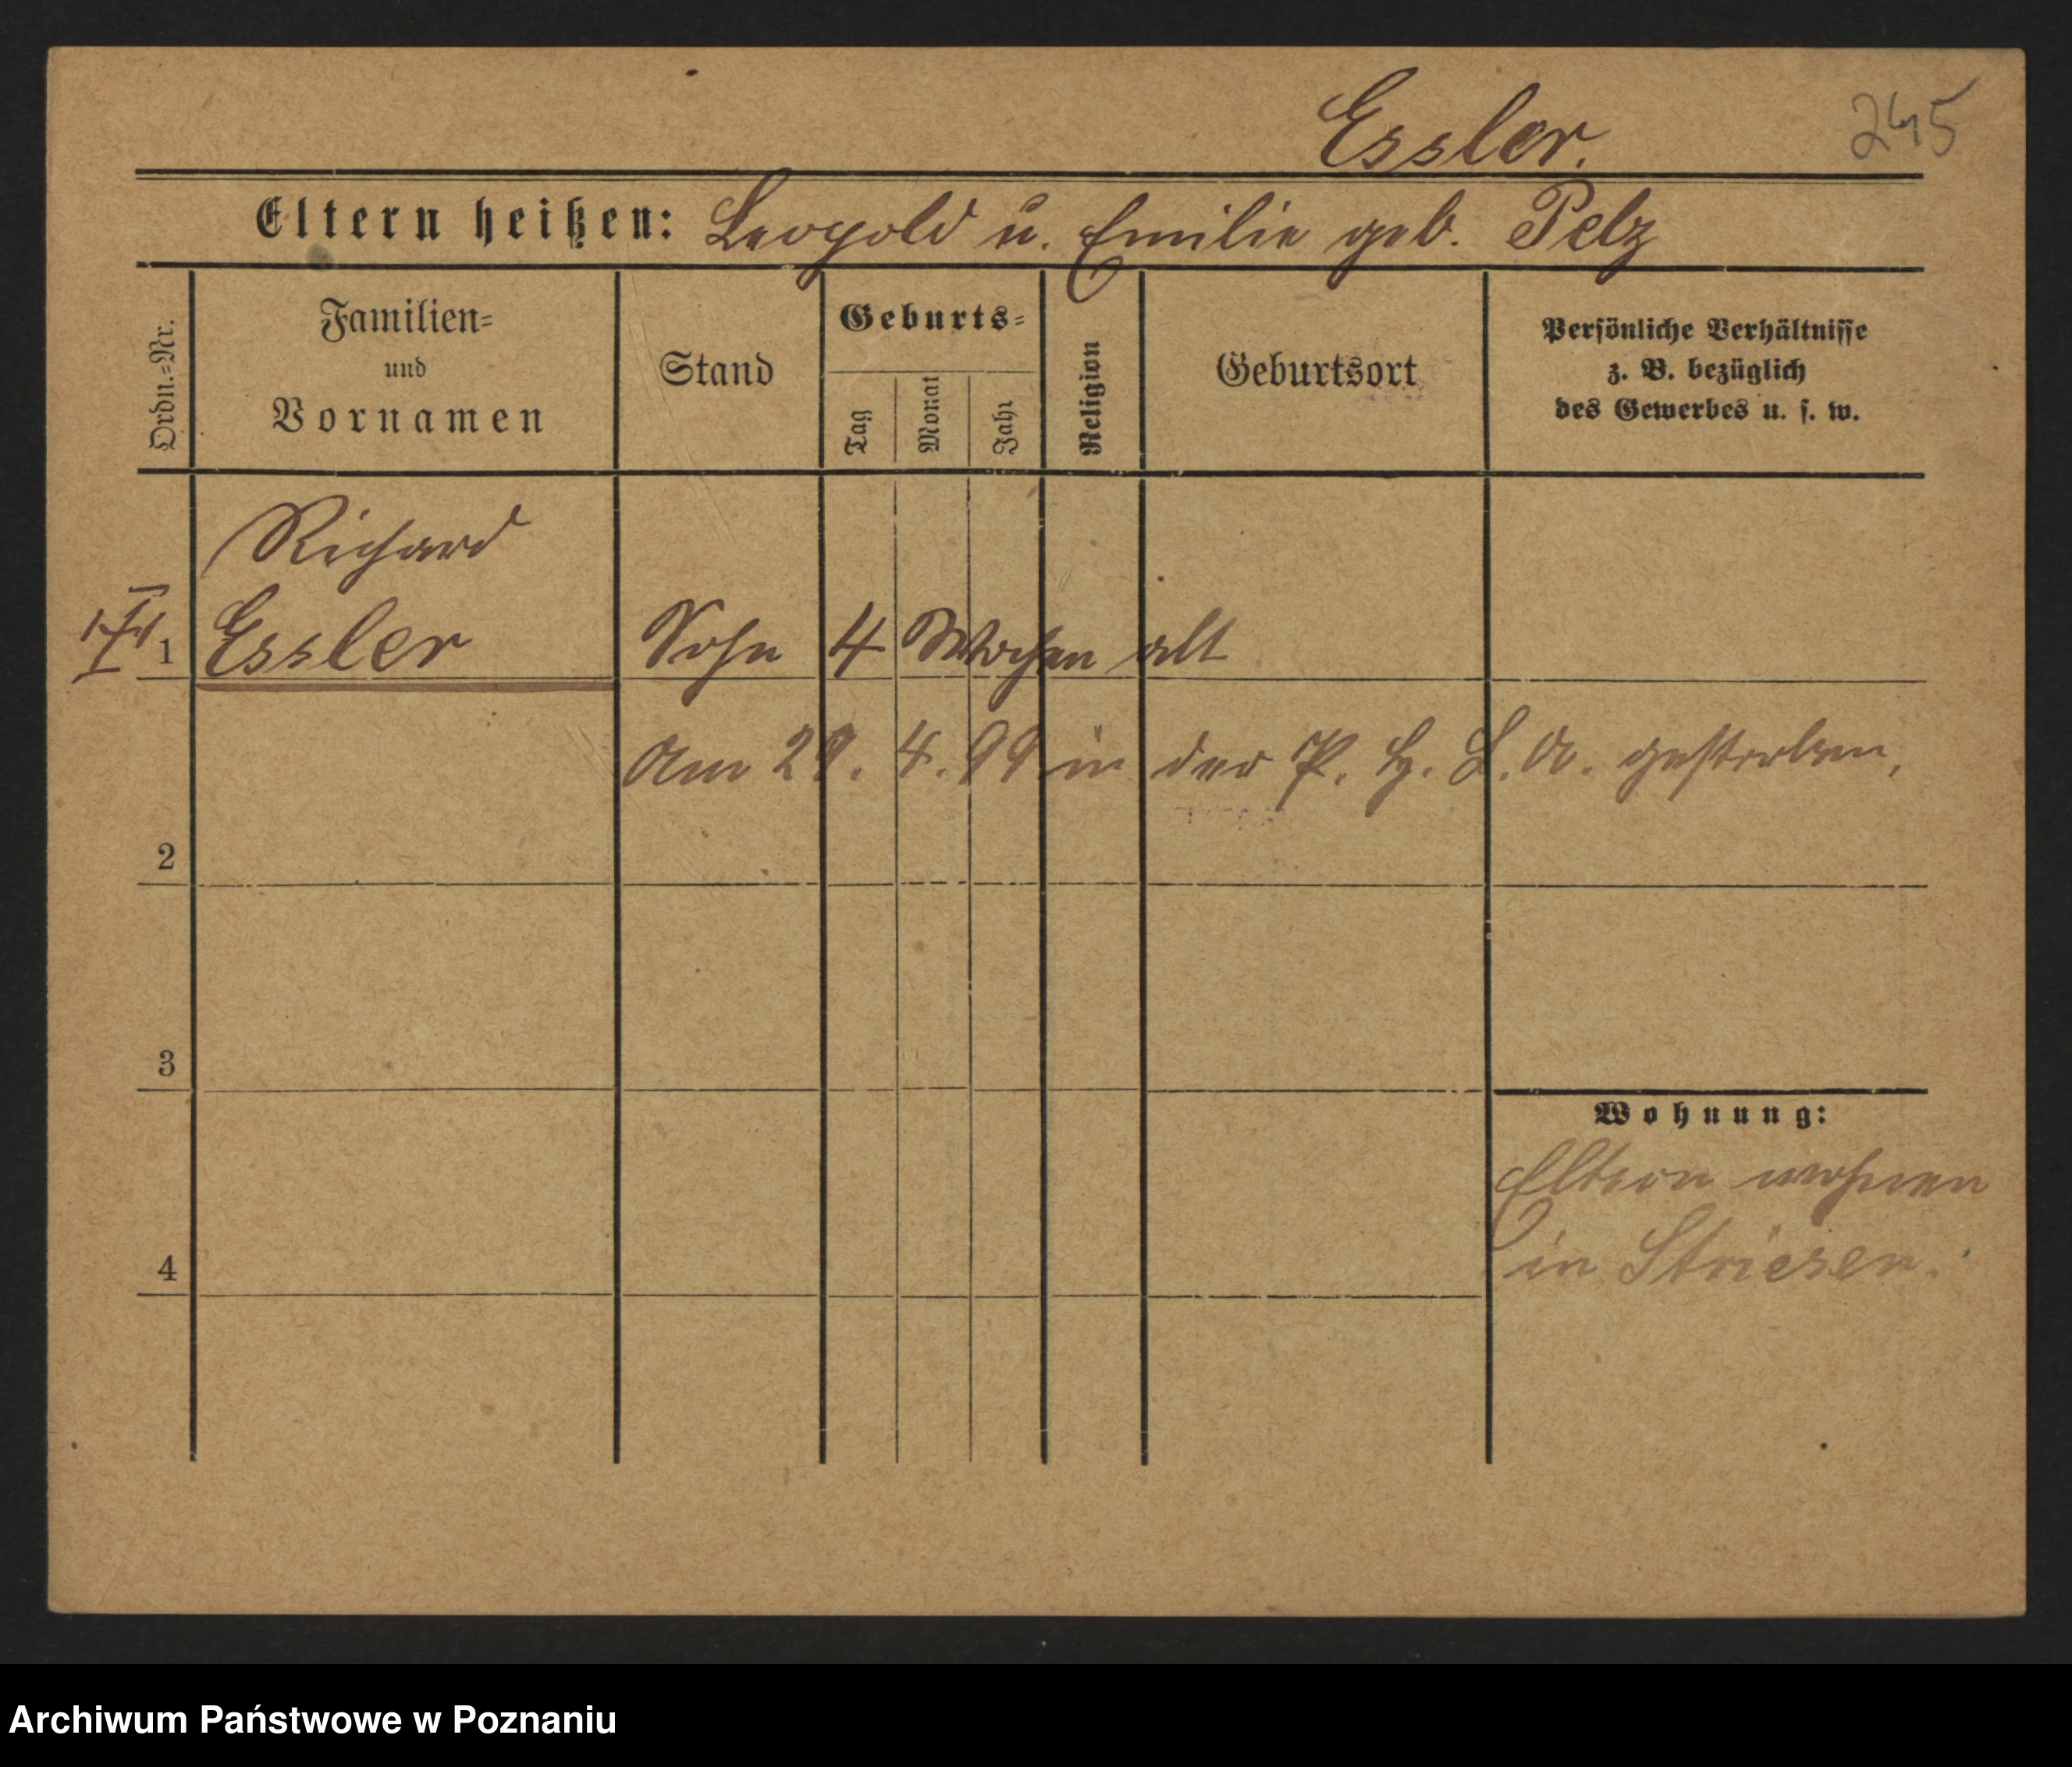 Essler.
245
Eltern heißen: Leopold u. Emilie geb. Pelz
Ordn.=Nr.
Familien=
und
Vornamen
Stand
Geburts=
Tag
Monat
Jahr
Religion
Geburtsort
Persönliche Verhältnisse
z. B. bezüglich
des Gewerbes u. s. w.
Richard
1 Essler Sohn 4 Wochen alt
Am 29. 4. 99 in der P. H. L. A. gestorben,
2
3
Wohnung:
Eltern wohnen
in Striesen.
4
Archiwum Państwowe w Poznaniu